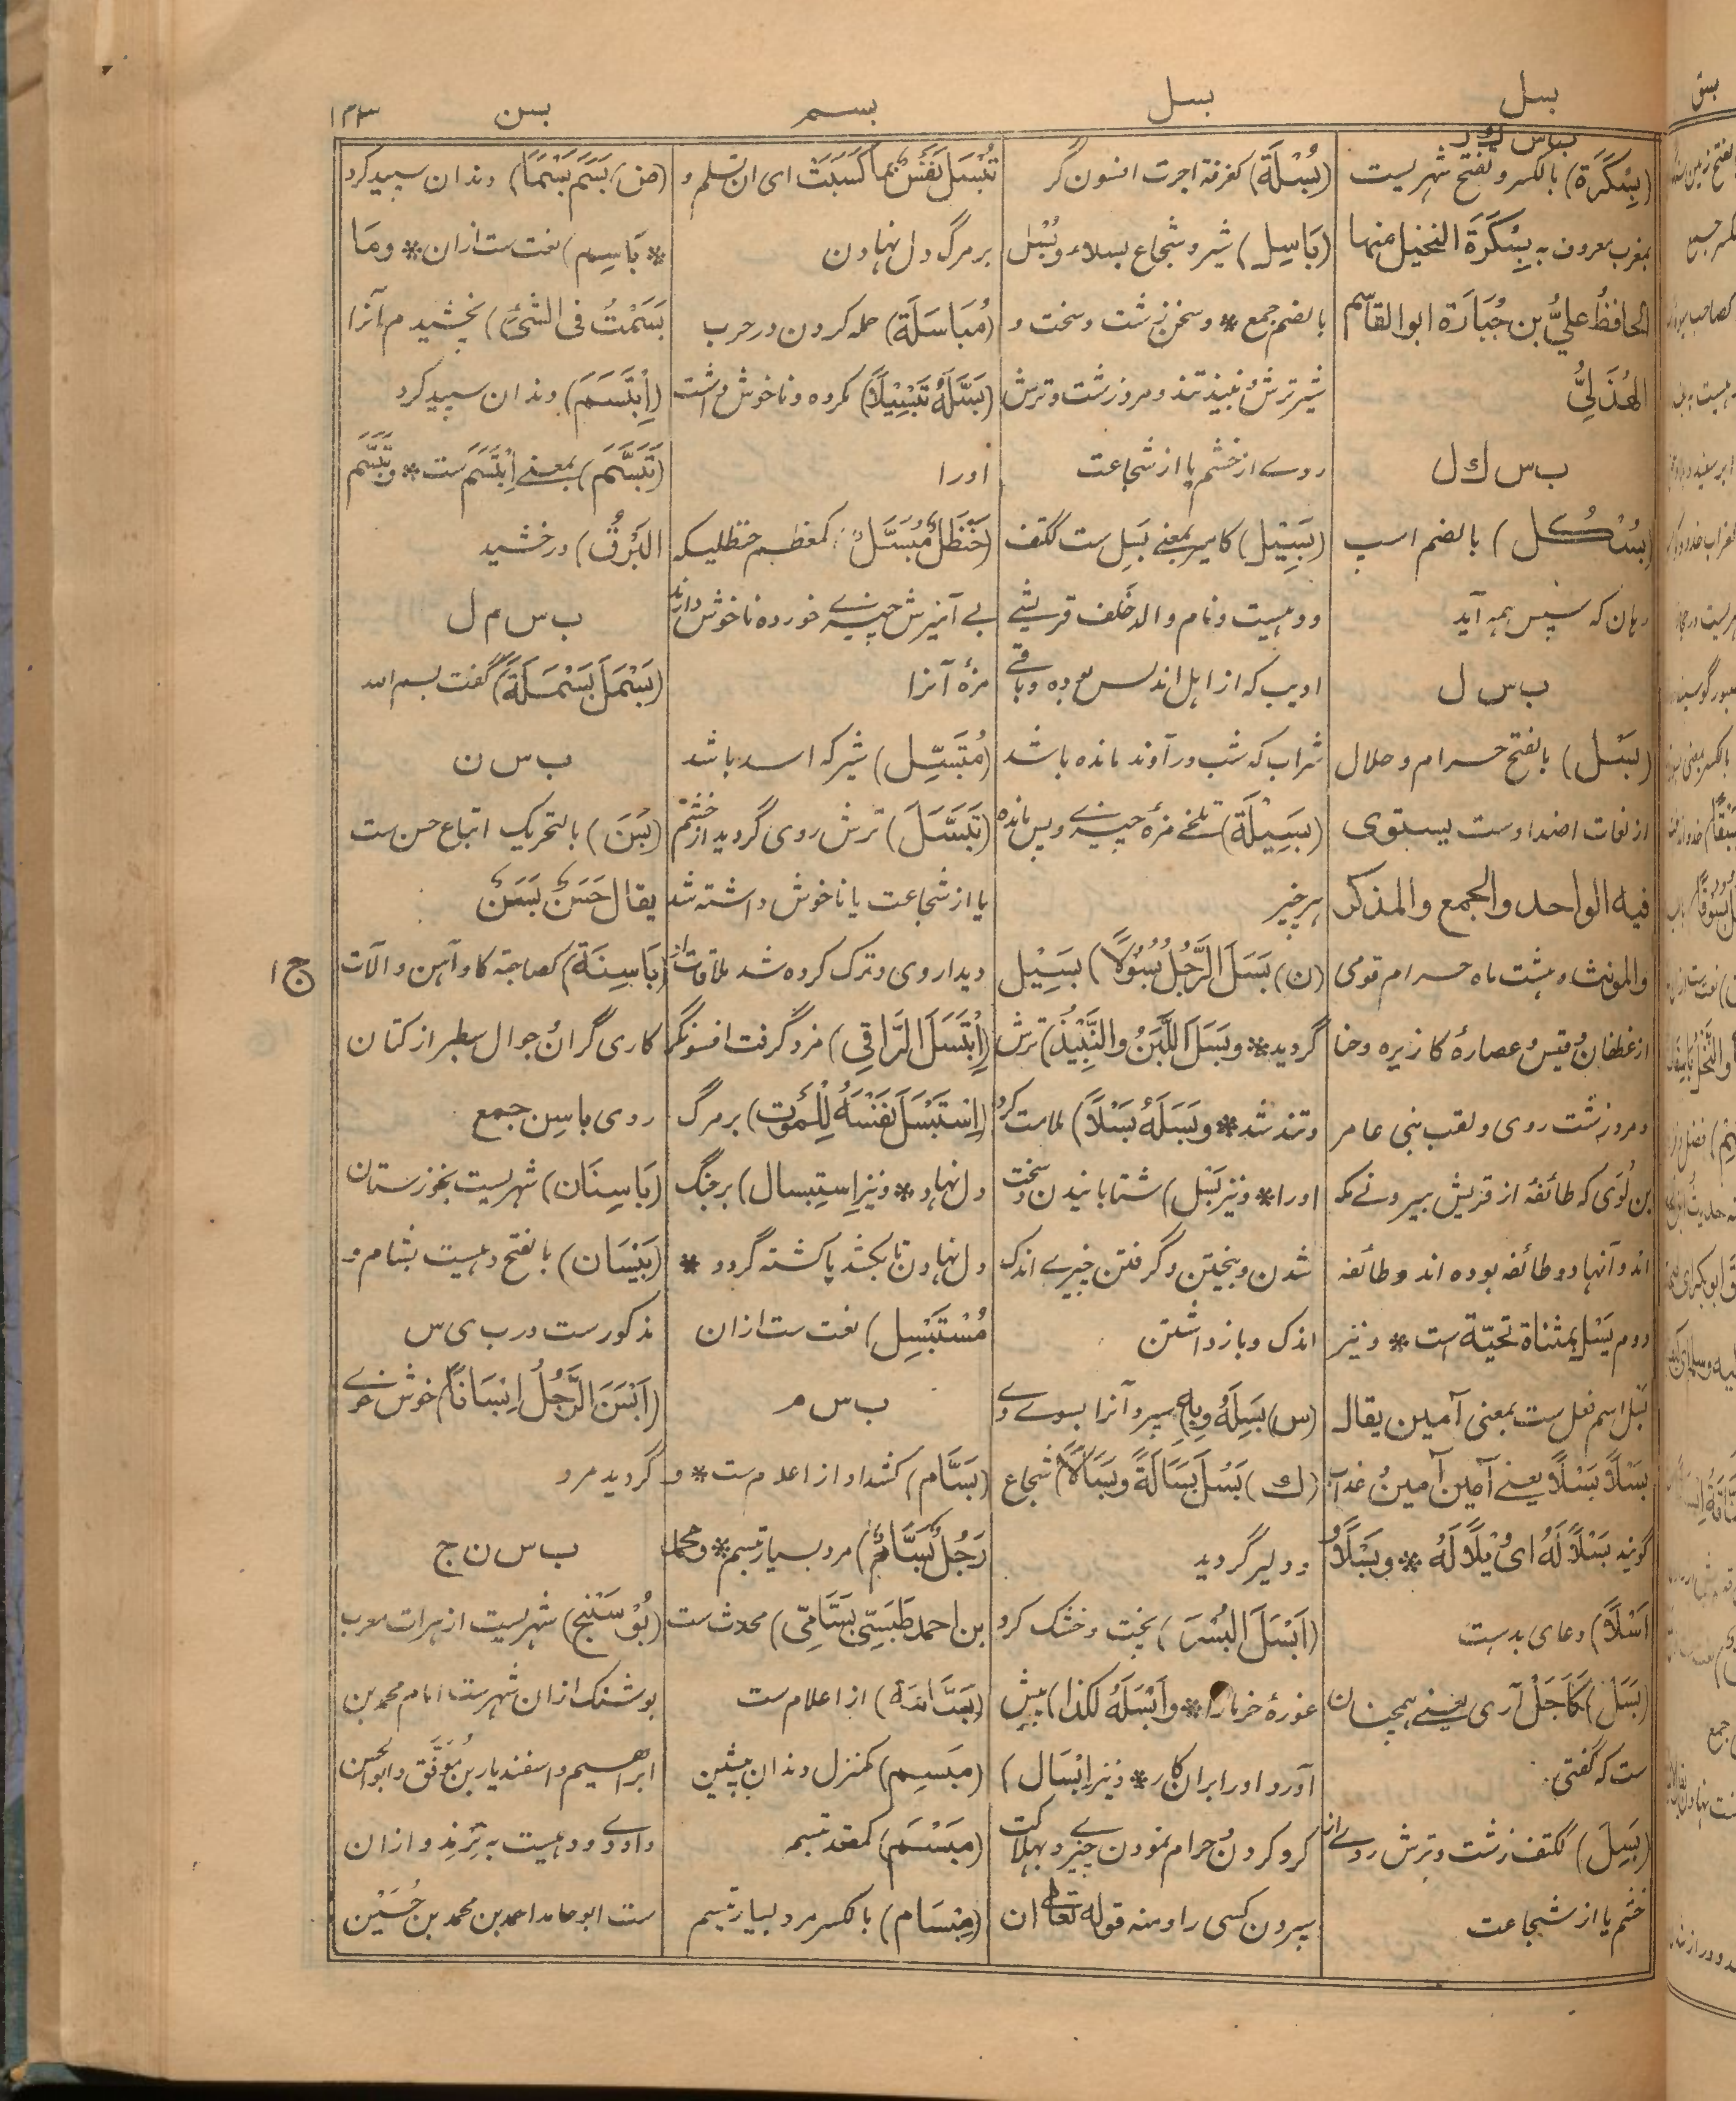 بسل
بسل
بسم
بسن
۱۴۳
ب س ك ر
(بِسْكَرَة) بالكسر و تفتح شهریست
بمغرب معروف به بِسْكَرَة النخیل منها
الحافظُ علیُّ بن جُبَارَة ابو القاسم
الهُذَلِیُّ
ب س ك ل
(بُسْكُل) بالضم اسپ
رهان که سپس همه آید
ب س ل
(بَسْل) بالفتح حرام و حلال
از لغات اضداد ست یستوی
فیه الواحد والجمع والمذكر
والمونث و هشت ماه حرام قومی
از غطفان و قیس و عصارهٔ کازیره و حنا
و مرد زشت روی و لقب بنی عامر
بن لُوَی که طائفهٔ از قریش بیرونے مکه
اند و آنها دو طائفه بوده اند و طائفه
دوم یَسْل بمثناة تحتیّة است * و نیز
بَسْل اسم فعل ست بمعنی آمین یقال
بَسْلًا بَسْلًا یعنے آمین آمین و در نفرین
گویند بَسْلًا لَهُ ای وَیْلًا لَهُ * و بَسْلًا و
اَسْلًا) دعای بدست
(بَسَل) كَاَجَلْ آری یعنے همچنان
ست که گفتی
(بَسِل) ککتف زشت و ترش روے از
خشم یا از شجاعت
(بُسْلَة) کغرفة اجرت افسون گر
(بَاسِل) شیر و شجاع بسلاء و بُسْل
بالضم جمع * و سخن زشت و سخت و
شیر ترش و نبیذ تند و مرد زشت و ترش
روے از خشم یا از شجاعت
(بَسِیْل) کامیر بمعنے بَسِل ست ککتف
و دهیست و نام والد خلف قریشی
ادیب که از اهل اندلس بوده و باقے
شراب که شب در آوند مانده باشد
(بَسِیْلَة) تلخے مزهٔ چیزے و پس مانده
هر چیز
(ن) بَسَلَ الرَّجُلُ بُسُوْلًا) بَسِیْل
گردید * و بَسَلَ اللَّبَنُ والنَّبِیْذُ) ترش
و تند شد * و بَسَلَهُ بَسْلًا) ملامت کرد
اورا * و نیز بَسْل) شتابانیدن و سخت
شدن و بیختن و گرفتن چیزے اندک
اندک و باز داشتن
(س) بَسِلَهُ وبِهِ سپرد آنرا بسوے وے
(ك) بَسُلَ بَسَالَةً و بَسَالًا) شجاع
و دلیر گردید
(اَبْسَلَ البُسْرَ) پخت و خشک کرد
غورهٔ خرما را * و اَبْسَلَهُ لکذا) پیش
آورد اورا بران کار * و نیز اِبْسَال)
گرو کردن و حرام نمودن چیزے و بهلاکت
سپردن کسی را و منه قوله تعالی ان
تُبْسَلَ نَفْسٌ بِمَا كَسَبَتْ ای ان تسلم و
بر مرگ دل نهادن
(مُبَاسَلَة) حمله کردن در حرب
(بَسَّلَهُ تَبْسِیْلًا) مکروه و ناخوش داشت
اورا
(حَنْظَلٌ مُبَسَّلٌ) کمعظم حنظلیکه
بے آمیزش چیزے خورده ناخوش دارند
مزهٔ آنرا
(مُتَبَسِّل) شیر که اسد باشد
(تَبَسَّلَ) ترش روی گردید از خشم
یا از شجاعت یا ناخوش داشته شد
دیدار وی و ترک کرده شد ملاقات او
(اِبْتَسَلَ الرَّاقِی) مزد گرفت افسونگر
(اِسْتَبْسَلَ نَفْسَهُ لِلْمَوْت) بر مرگ
دل نهاد * و نیز اِستِبسال) بر جنگ
دل نهادن تا بکشد یا کشته گردد *
مُسْتَبْسِل) نعت ست ازان
ب س م
(بَسَّام) کشداد از اعلام ست * و
رَجُلٌ بَسَّامٌ) مرد بسیار تبسم * و محمد
بن احمد طَبَسِیّ بَسَّامِیّ) محدث ست
(بَسَّامَة) از اعلام ست
(مَبسِم) کمنزل دندان پیشین
(مَبْسَم) کمقعد تبسم
(مِبْسَام) بالکسر مرد بسیار تبسم
(ض) بَسَمَ بَسْمًا) دندان سپید کرد
* بَاسِم) نعت ست ازان * ومَا
بَسَمْتُ فی الشَّیْءِ) نچشیدم آنرا
(اِبْتَسَمَ) دندان سپید کرد
(تَبَسَّمَ) بمعنے اِبْتَسَمَ ست * و تَبَسَّمَ
البَرْقُ) درخشید
ب س م ل
(بَسْمَلَ بَسْمَلَةً) گفت بسم الله
ب س ن
(بَسَن) بالتحریک اتباع حسن ست
یقال حَسَنٌ بَسَنٌ
(بَاسِنَة) کصاحبة گاو آهن و آلات
کاری گران و جوال سطبر از کتان
روی باسِن جمع
(بَاسِنَان) شهریست بخوزستان
(بَیْسَان) بالفتح دهیست بشام و
مذکور ست در ب ی س
(اَبْسَنَ الرَّجُلُ اِبْسَانًا) خوش خوے
گردید مرد
ب س ن ج
(بُوْسَنْج) شهریست از هرات معرب
بوشنک ازان شهر ست امام محمد بن
ابراهیم و اسفندیار بن مُوَفَّق و ابو الحسن
داودے و دهیست به تِرْمِذ و ازان
ست ابو حامد احمد بن محمد بن حُسَیْن
ج ۱